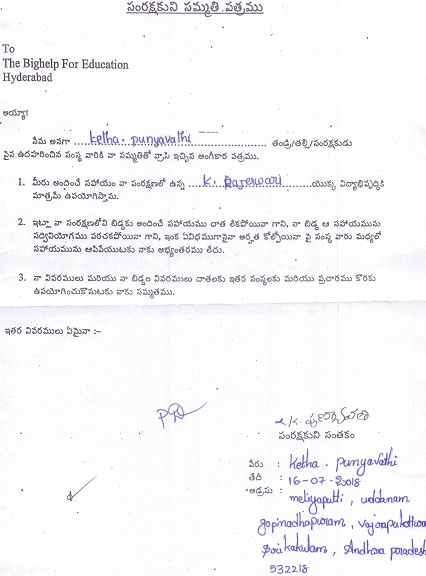 సంరక్షకుని సమ్మతి పత్రము
To
The Bighelp For Education
Hyderabad
అయ్యా!
పేము అనగా ...ketha. punyavathi... తండ్రి/తల్లి/సంరక్షకుడు
పైన ఉదహరించిన సంస్థ వారికి నా సమ్మతితో వ్రాసి ఇచ్చిన అంగీకార పత్రము.
1. మీరు అందించే సహాయం నా సంరక్షణలో ఉన్న ...K. Rajeswari...యొక్క విద్యాభివృద్ధికి
మాత్రమే ఉపయోగిస్తాను.
2. ఇట్లా నా సంరక్షణలోని బిడ్డకు అందించే సహాయము దాత లేకపోయినా గాని, నా బిడ్డ ఆ సహాయమును
సద్వినియోగము పరచకపోయినా గాని, ఇంక ఏవిధముగానైనా అర్హత కోల్పోయినా పై సంస్థ వారు మధ్యలో
సహాయమును ఆపివేయుటకు నాకు అభ్యంతరము లేదు.
3. నా వివరములు మరియు నా బిడ్డల వివరములు దాతలకు ఇతర సంస్థలకు మరియు ప్రచారము కొరకు
ఉపయోగించుకొనుటకు నాకు సమ్మతము.
ఇతర వివరములు ఏమైనా :-
K. పుణ్యావతి
సంరక్షకుని సంతకం
పేరు : Ketha. punyavathi
తేదీ : 16-07-2018
అడ్రసు : meliyaputti, uddanam
gopinadhapuram, vajrapukotturu
Srikakulam, Andhra pradesh
532218